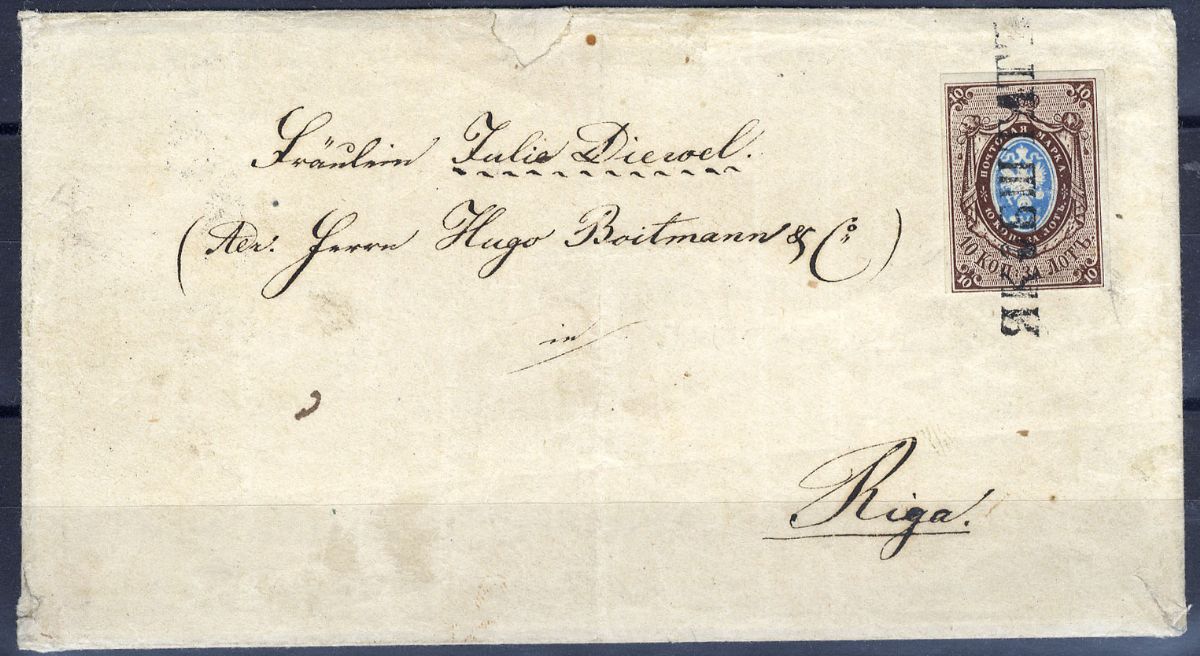 Fräulein Julie Diewel.
(Adr. Herrn Hugo Boitmann & Co)
in
Riga.
10 10
ПОЧТОВАЯ МАРКА
10 КОП. ЗА ЛОТЪ.
10 КОП. ЗА ЛОТЪ.
10 10